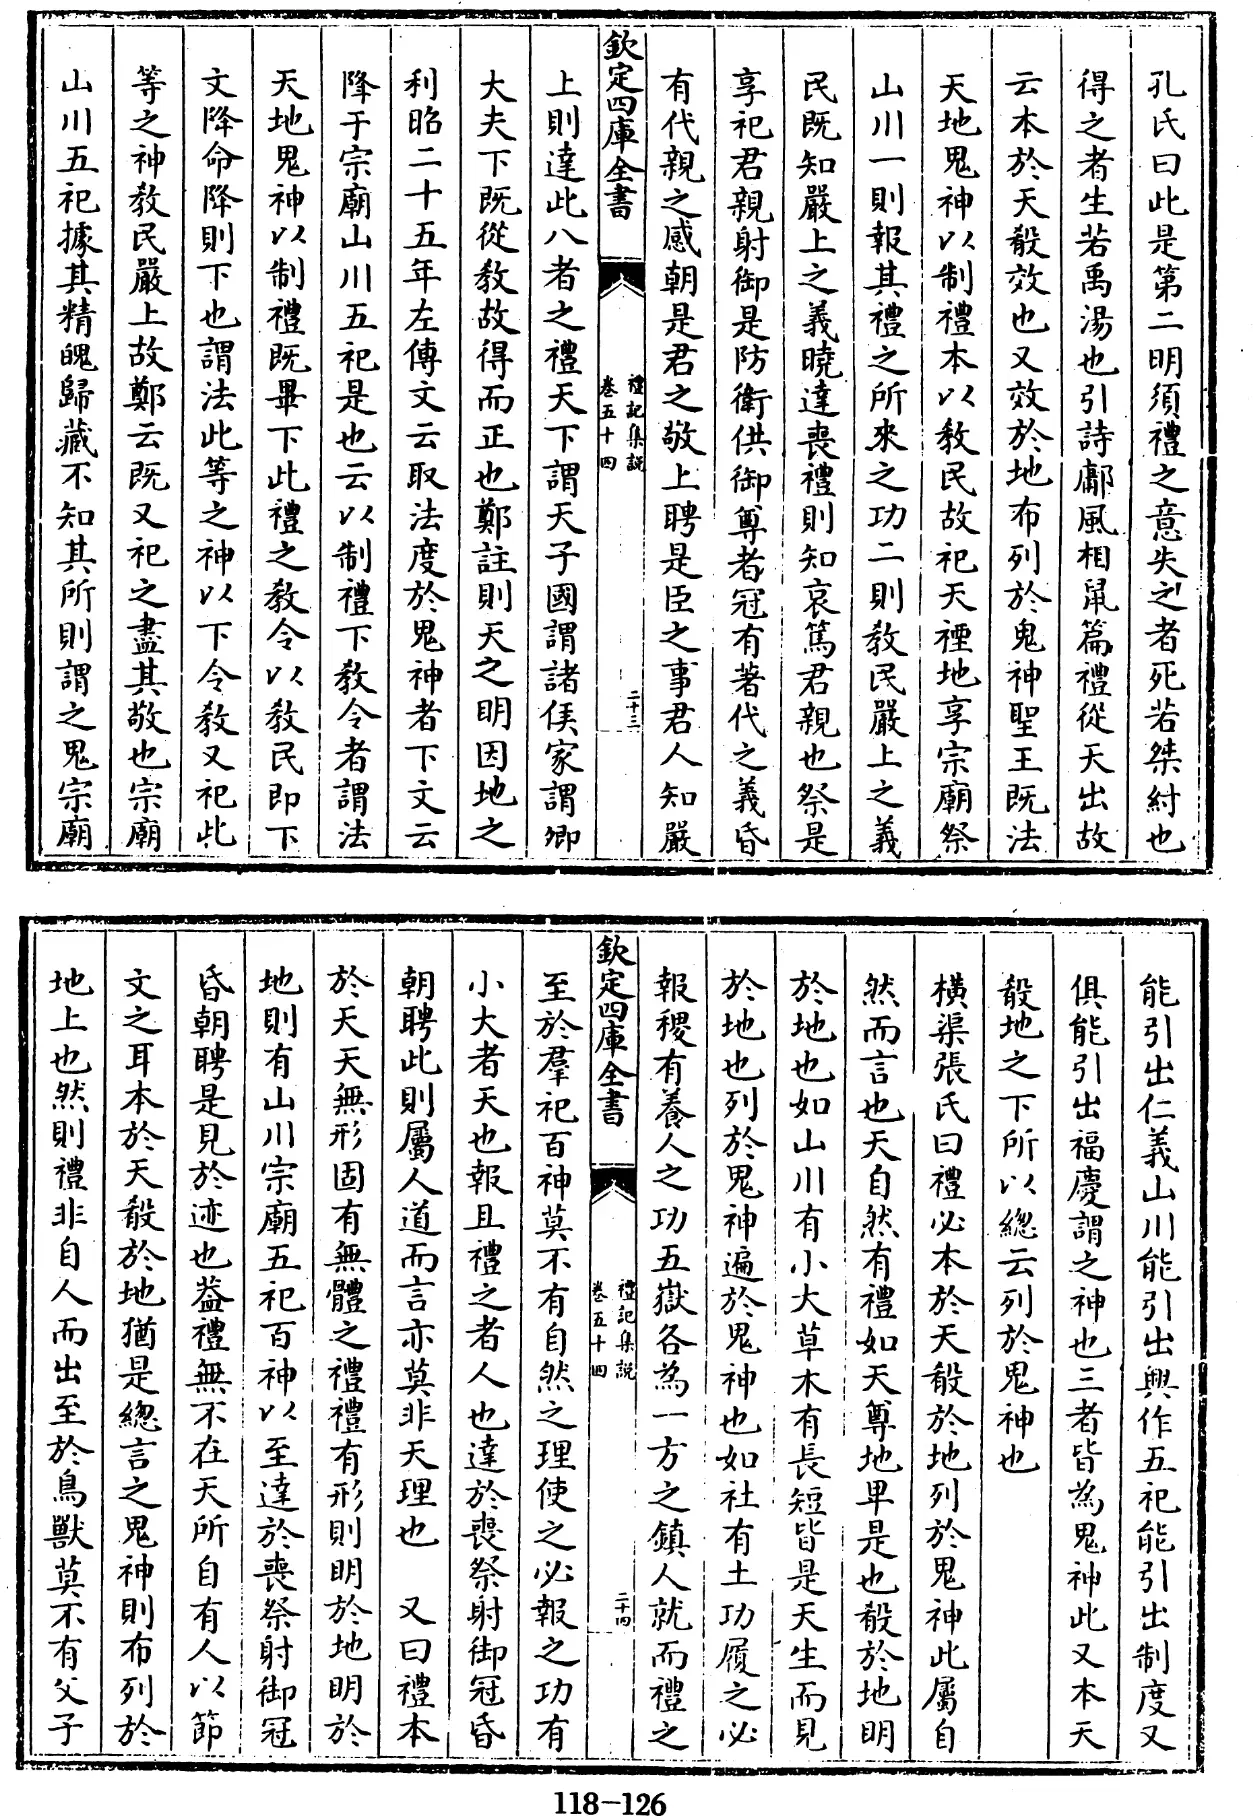 孔氏曰此是第二明須禮之意失之者死若桀紂也
得之者生若禹湯也引詩鄘風相鼠篇禮從天出故
云本於天殽效也又效於地布列於鬼神聖王既法
天地鬼神以制禮本以教民故祀天禋地享宗廟祭
山川一則報其禮之所來之功二則教民嚴上之義
民既知嚴上之義曉達喪禮則知哀篤君親也祭是
享祀君親射御是防衛供御尊者冠有著代之義昏
有代親之感朝是君之敬上聘是臣之事君人知嚴
欽定四庫全書
禮記集說
卷五十四
二十三
上則達此八者之禮天下謂天子國謂諸侯家謂卿
大夫下既從教故得而正也鄭註則天之明因地之
利昭二十五年左傳文云取法度於鬼神者下文云
降于宗廟山川五祀是也云以制禮下教令者謂法
天地鬼神以制禮既畢下此禮之教令以教民即下
文降命降則下也謂法此等之神以下令教又祀此
等之神教民嚴上故鄭云既又祀之盡其敬也宗廟
山川五祀據其精魄歸藏不知其所則謂之鬼宗廟
能引出仁義山川能引出興作五祀能引出制度又
俱能引出福慶謂之神也三者皆為鬼神此又本天
殽地之下所以總云列於鬼神也
橫渠張氏曰禮必本於天殽於地列於鬼神此屬自
然而言也天自然有禮如天尊地卑是也殽於地明
於地也如山川有小大草木有長短皆是天生而見
於地也列於鬼神遍於鬼神也如社有土功履之必
報稷有養人之功五嶽各為一方之鎮人就而禮之
欽定四庫全書
禮記集說
卷五十四
二十四
至於羣祀百神莫不有自然之理使之必報之功有
小大者天也報且禮之者人也達於喪祭射御冠昏
朝聘此則屬人道而言亦莫非天理也　又曰禮本
於天天無形固有無體之禮禮有形則明於地明於
地則有山川宗廟五祀百神以至達於喪祭射御冠
昏朝聘是見於迹也葢禮無不在天所自有人以節
文之耳本於天殽於地猶是總言之鬼神則布列於
地上也然則禮非自人而出至於鳥獸莫不有父子
118-126